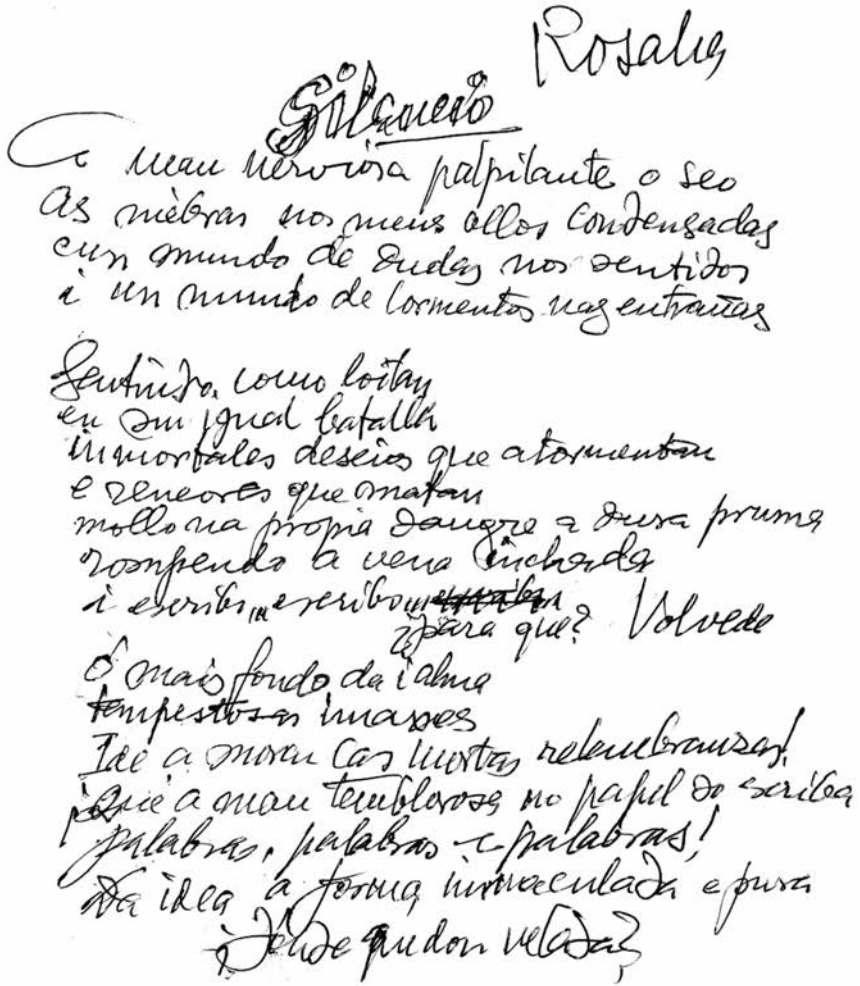 Rosalia
Silencio
A man nerviosa palpitante o seo
As niebras nos meus ollos condensadas
cun mundo de dudas nos sentidos
i un mundo de tormentos nas entrañas
Sentindo como loitan
en sin igual batalla
inmortales deseios que atormentan
e rencores que matan
mollo na propia sangre a dura pruma
rompendo a vena inchada
i escribo... escribo...
¿para que? Volvede
ó mais fondo da ialma
tempestosas imaxes
Ide a morar cas mortas relembranzas!
¡que a man temblorosa no papel so scriba
palabras, palabras e palabras!
Da idea a forma inmaculada e pura
¿Dónde quedou velada?